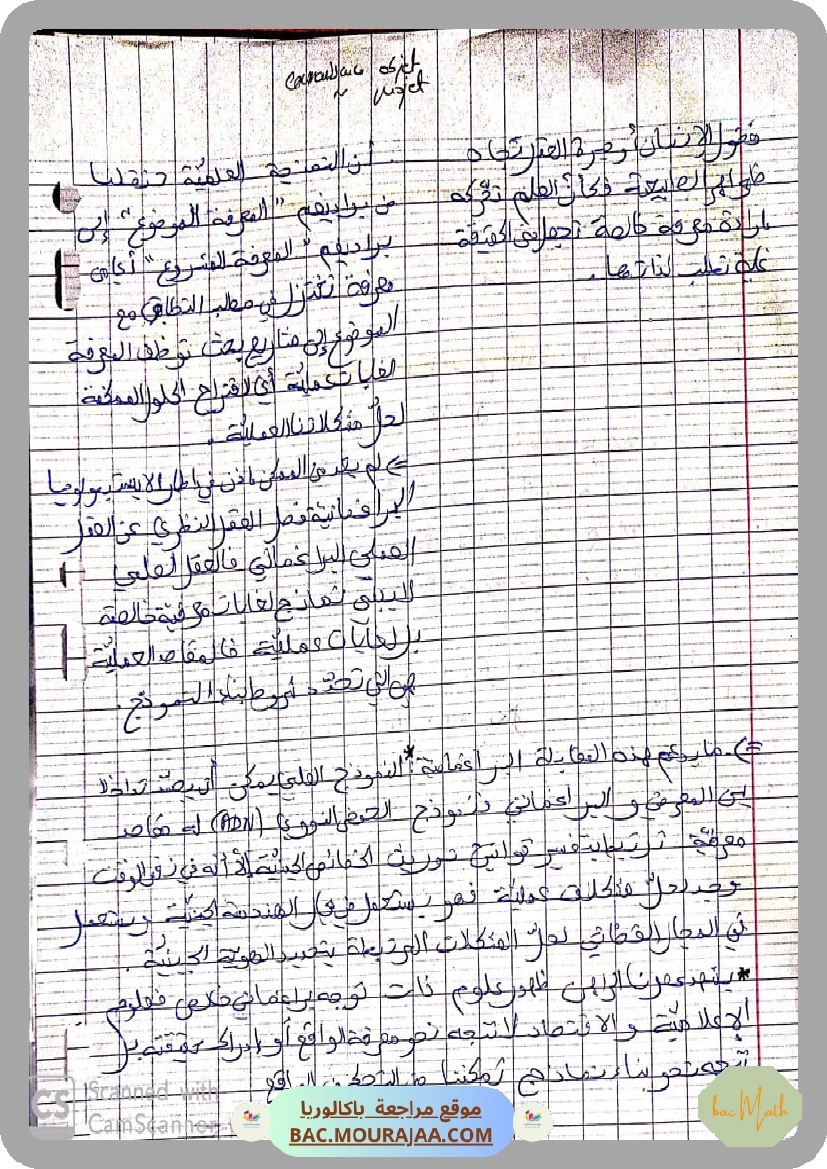 connaissance objet
~ projet
فضول الإنسان وحيرة العقل تجاه
ظواهر الطبيعة فكأن العلم تحركه
إرادة معرفة خالصة تجعل من الحقيقة
غاية تطلب لذاتها.
. أن النمذجة العلمية تنقلنا
من براديغم "المعرفة الموضوع" إلى
براديغم "المعرفة المشروع" أي من
معرفة تختزل في مطلب التطابق مع
الموضوع إلى مشاريع بحث توظف المعرفة
لغايات عملية أي لاقتراح الحلول الممكنة
لحل مشكلاتنا العملية.
=> لم يعد من الممكن إذن في إطار الابستيمولوجيا
البراغماتية فصل العقل النظري عن العقل
العملي البراغماتي فالعقل العلمي
لا يبني نماذج لغايات معرفية خالصة
بل لغايات عملية فالمقاصد العملية
هي التي تحدد شروط بناء النموذج.
=> ما يدعم هذه المقاربة البراغماتية: * النموذج العلمي يمكن أن يجسد تداخلا
بين المعرفي والبراغماتي فنموذج الحمض النووي (ADN) له مقاصد
معرفية ترتبط بتفسير قوانين توريث الخصائص الجينية إلا أنه في نفس الوقت
وجد لحل مشكلات عملية فهو يستعمل في مجال الهندسة الجينية ويستعمل
في المجال القضائي لحل المشكلات المرتبطة بتحديد الهوية الجينية.
* يشهد عصرنا الراهن ظهور علوم ذات توجه براغماتي خالص فعلوم
الإعلامية والاقتصاد لا تتجه نحو معرفة الواقع أو إدراك حقيقته بل
تتجه نحو بناء نماذج تمكننا من التحكم في الواقع
CS Scanned with
CamScanner
موقع مراجعة باكالوريا
BAC.MOURAJAA.COM
bac Math